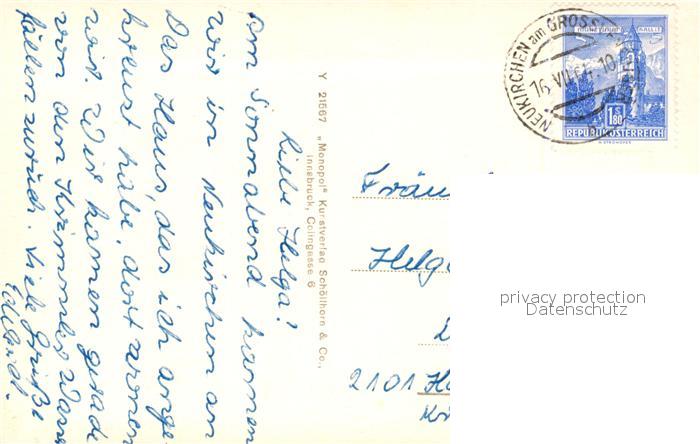 Liebe Helga!
Am Sonnabend kamen
wir in Neukirchen an
Das Haus, das ich ange-
kreuzt habe, dort wohnen
wir. Wir kamen gerade
von den Krimmler Wasser
fällen zurück. Viele Grüße
Y 21567 „Monopol" Kunstverlag Schöllhorn & Co.,
Innsbruck, Colingasse 6
NEUKIRCHEN am GROSS
16.VII. 10
S 1.80
REPUBLIK ÖSTERREICH
Fräu
Helg
2101 H
privacy protection
Datenschutz